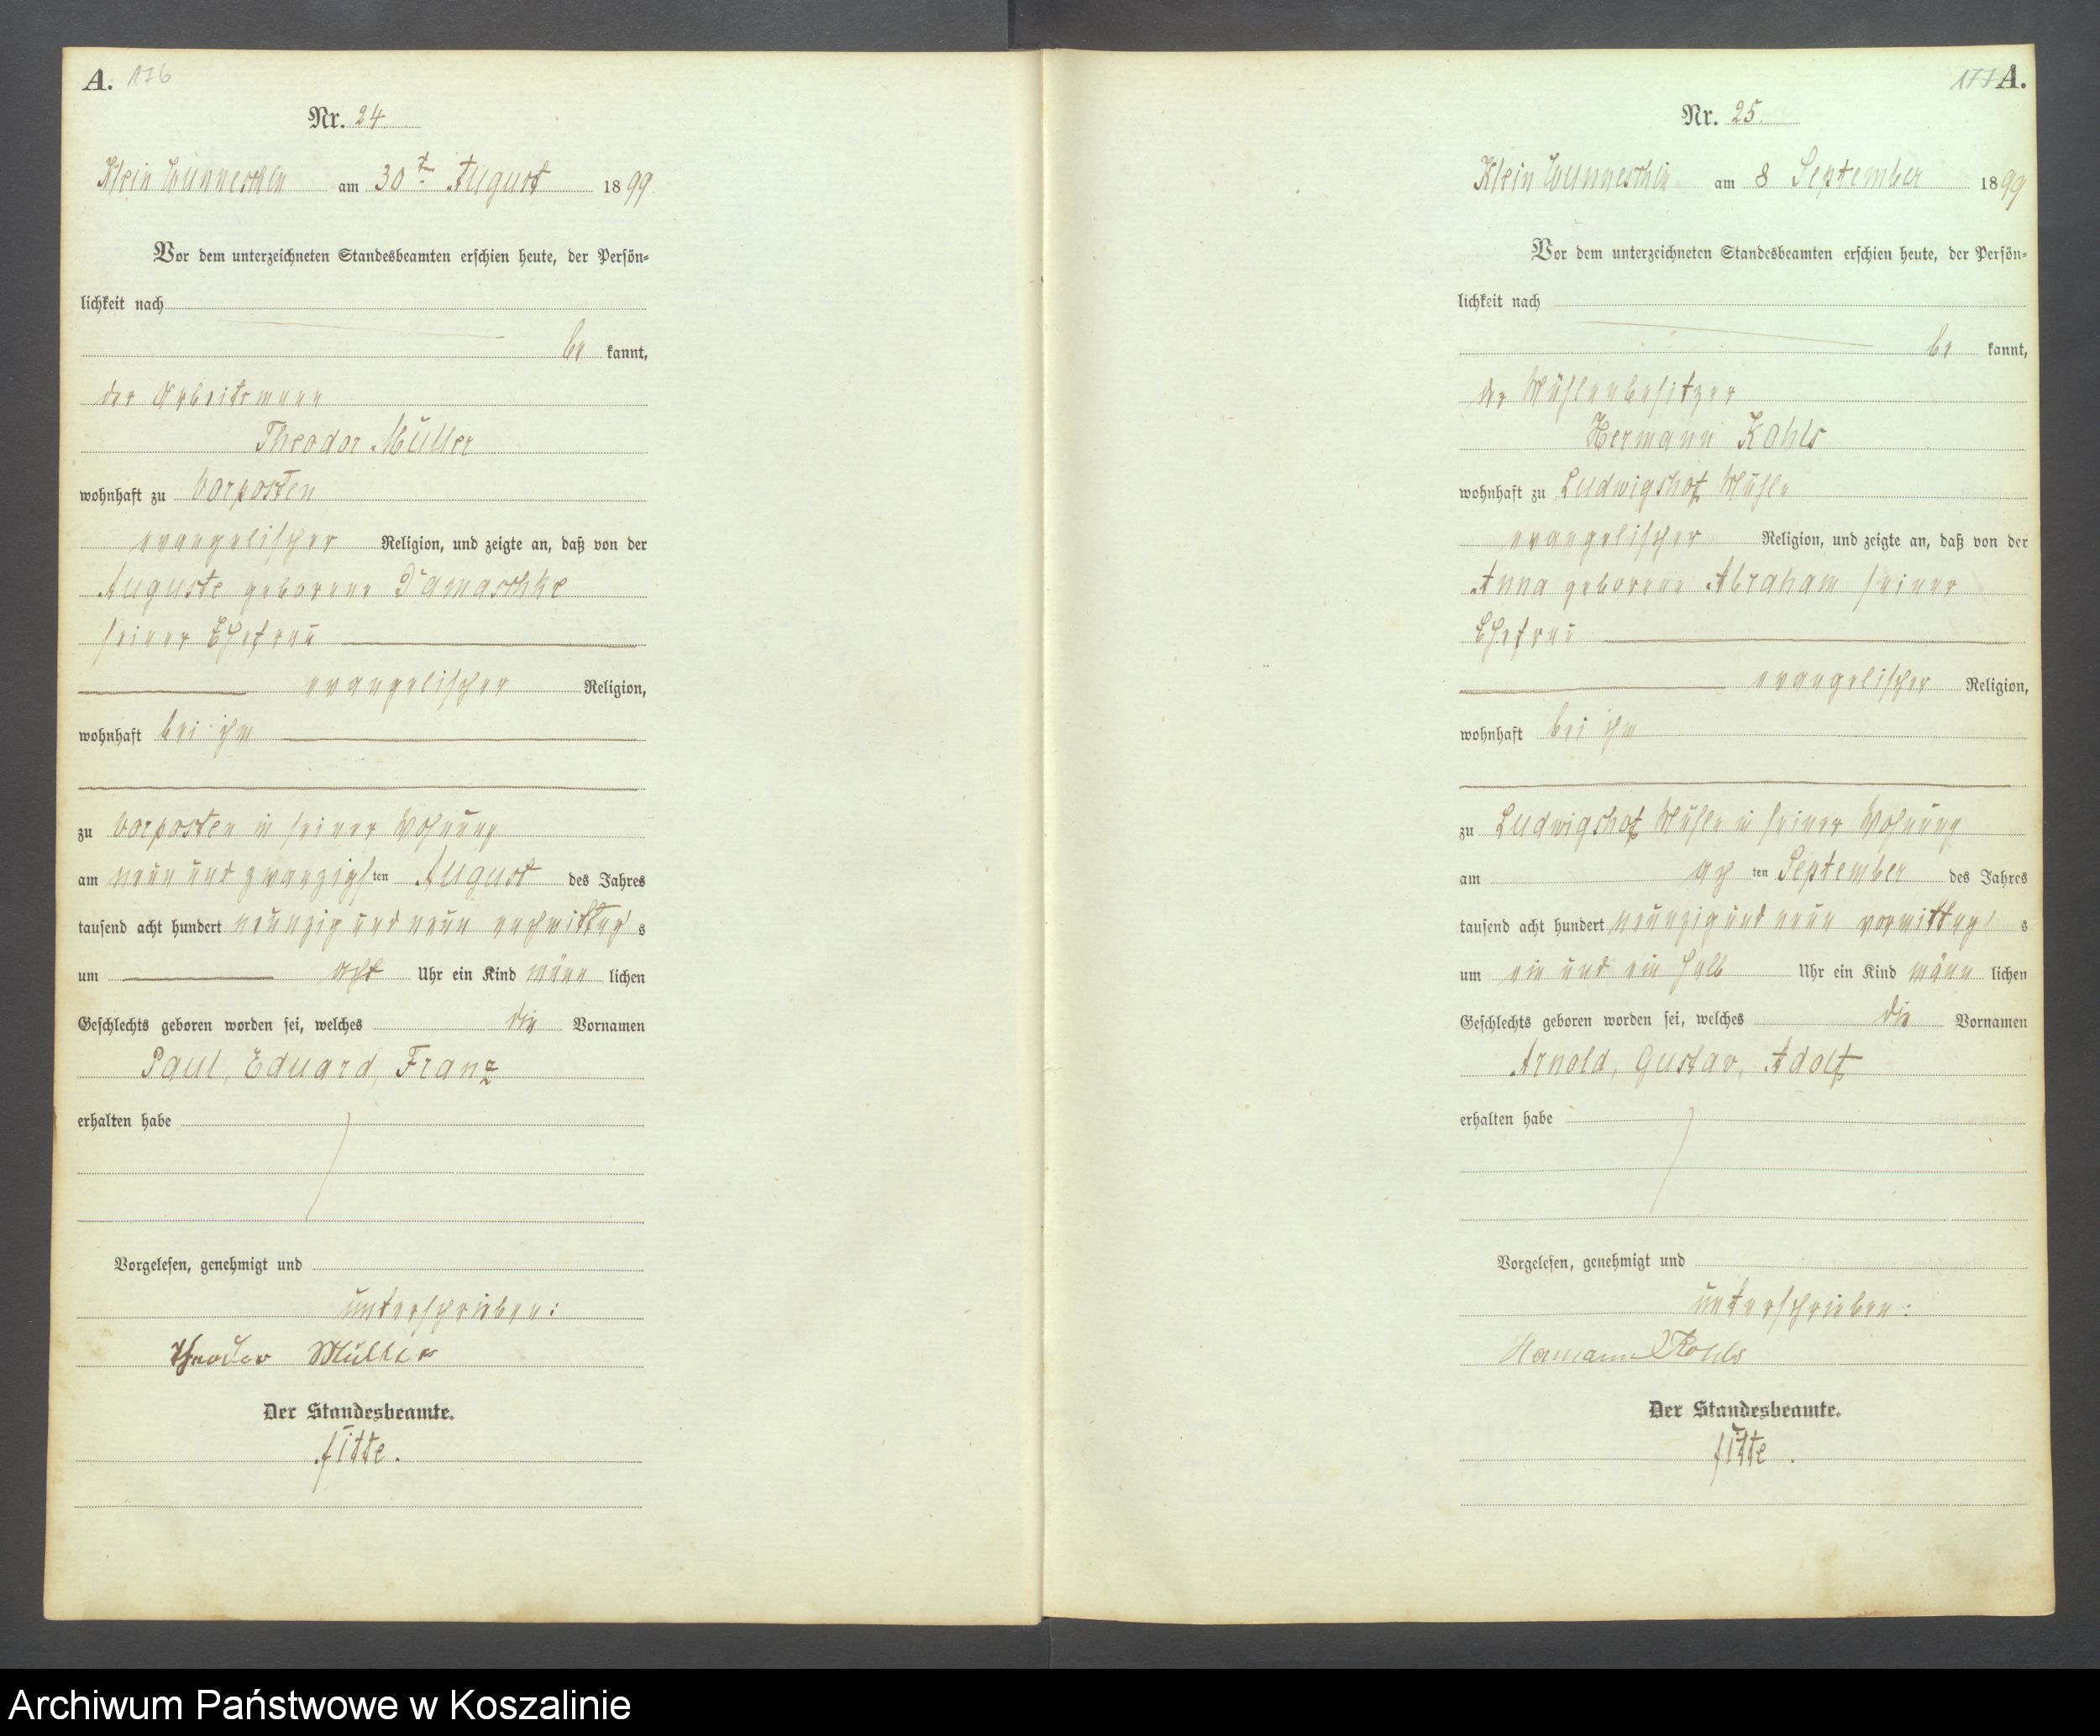 A. 176
Nr. 24
Klein Wunneschin am 30t August 1899
Vor dem unterzeichneten Standesbeamten erschien heute, der Persön-
lichkeit nach
be kannt,
der Arbeitsmann
Theodor Müller
wohnhaft zu Vorposten
evangelischer Religion, und zeigte an, daß von der
Auguste geborene Damaschke
seiner Ehefrau
evangelischer Religion,
wohnhaft bei ihm
zu Vorposten in seiner Wohnung
am neun und zwanzigsten August des Jahres
tausend acht hundert neunzig und neun nachmittags
um acht Uhr ein Kind männ lichen
Geschlechts geboren worden sei, welches die Vornamen
Paul, Eduard, Franz
erhalten habe
Vorgelesen, genehmigt und
unterschrieben:
Theodor Müller
Der Standesbeamte.
fitte.
177 A.
Nr. 25.
Klein Wunneschin am 8 September 1899
Vor dem unterzeichneten Standesbeamten erschien heute, der Persön-
lichkeit nach
be kannt,
der Mühlenbesitzer
Hermann Kohls
wohnhaft zu Ludwigshof Mühle
evangelischer Religion, und zeigte an, daß von der
Anna geborene Abraham seiner
Ehefrau
evangelischer Religion,
wohnhaft bei ihm
zu Ludwigshof Mühle in seiner Wohnung
am ach ten September des Jahres
tausend acht hundert neunzig und neun vormittags
um ein und ein halb Uhr ein Kind männ lichen
Geschlechts geboren worden sei, welches die Vornamen
Arnold, Gustav, Adolf
erhalten habe
Vorgelesen, genehmigt und
unterschrieben:
Hermann Kohls
Der Standesbeamte.
fitte.
Archiwum Państwowe w Koszalinie